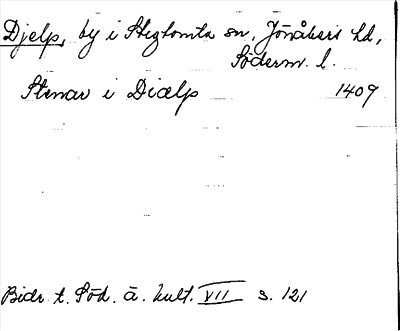 Djelp, by i Stigtomta sn, Jönåkers hd,
Söderm. l.
Stenar i Diælp 1409
Bidr t. Söd. ä. kult. VII s. 121